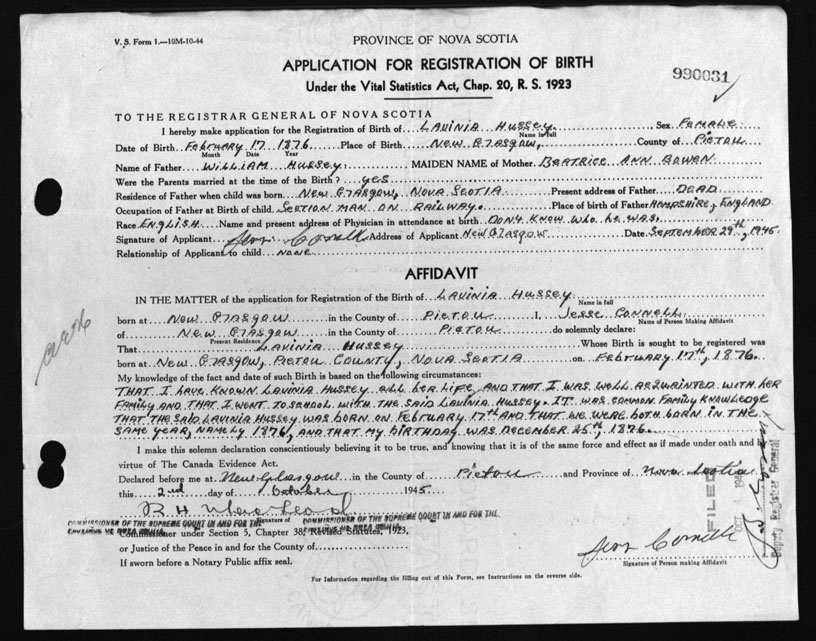 V. S. Form 1.—10M-10-44
PROVINCE OF NOVA SCOTIA
APPLICATION FOR REGISTRATION OF BIRTH
990031
Under the Vital Statistics Act, Chap. 20, R. S. 1923
TO THE REGISTRAR GENERAL OF NOVA SCOTIA
I hereby make application for the Registration of Birth of LAVINIA HUSSEY Sex FEMALE
Name in full
Date of Birth FEBRUARY 17 1876 Place of Birth NEW GLASGOW, County of PICTOU
Month Date Year
Name of Father WILLIAM HUSSEY MAIDEN NAME of Mother BEATRICE ANN BOWEN
Were the Parents married at the time of the Birth? YES
Residence of Father when child was born NEW GLASGOW, NOVA SCOTIA Present address of Father DEAD
Occupation of Father at Birth of child SECTION MAN ON RAILWAY. Place of birth of Father HAMPSHIRE, ENGLAND
Race ENGLISH Name and present address of Physician in attendance at birth DON'T KNOW WHO HE WAS.
Signature of Applicant Address of Applicant NEW GLASGOW Date SEPTEMBER 29th, 1945
Relationship of Applicant to child NONE
AFFIDAVIT
IN THE MATTER of the application for Registration of the Birth of LAVINIA HUSSEY
Name in full
born at NEW GLASGOW in the County of PICTOU I, JESSE CONNELL
Name of Person Making Affidavit
of NEW GLASGOW in the County of PICTOU do solemnly declare:
Present Residence
That LAVINIA HUSSEY Whose Birth is sought to be registered was
born at NEW GLASGOW, PICTOU COUNTY, NOVA SCOTIA on FEBRUARY 17th, 1876.
My knowledge of the fact and date of such Birth is based on the following circumstances:
THAT I HAVE KNOWN LAVINIA HUSSEY ALL HER LIFE, AND THAT I WAS WELL ACQUAINTED WITH HER
FAMILY AND THAT I WENT TO SCHOOL WITH THE SAID LAVINIA HUSSEY. IT WAS COMMON FAMILY KNOWLEDGE
THAT THE SAID LAVINIA HUSSEY WAS BORN ON FEBRUARY 17th AND THAT WE WERE BOTH BORN IN THE
SAME YEAR, NAMELY 1876, AND THAT MY BIRTHDAY WAS DECEMBER 25th, 1876.
I make this solemn declaration conscientiously believing it to be true, and knowing that it is of the same force and effect as if made under oath and by
virtue of The Canada Evidence Act.
Declared before me at New Glasgow in the County of Pictou and Province of Nova Scotia
this 2nd day of October 1945
Signature of
COMMISSIONER OF THE SUPREME COURT IN AND FOR THE COMMISSIONER OF THE SUPREME COURT IN AND FOR THE
Commissioner under Section 5, Chapter 38, Revised Statutes, 1923,
or Justice of the Peace in and for the County of
If sworn before a Notary Public affix seal.
Signature of Person making Affidavit
For Information regarding the filling out of this Form, see Instructions on the reverse side.
FILED
Deputy Registrar General